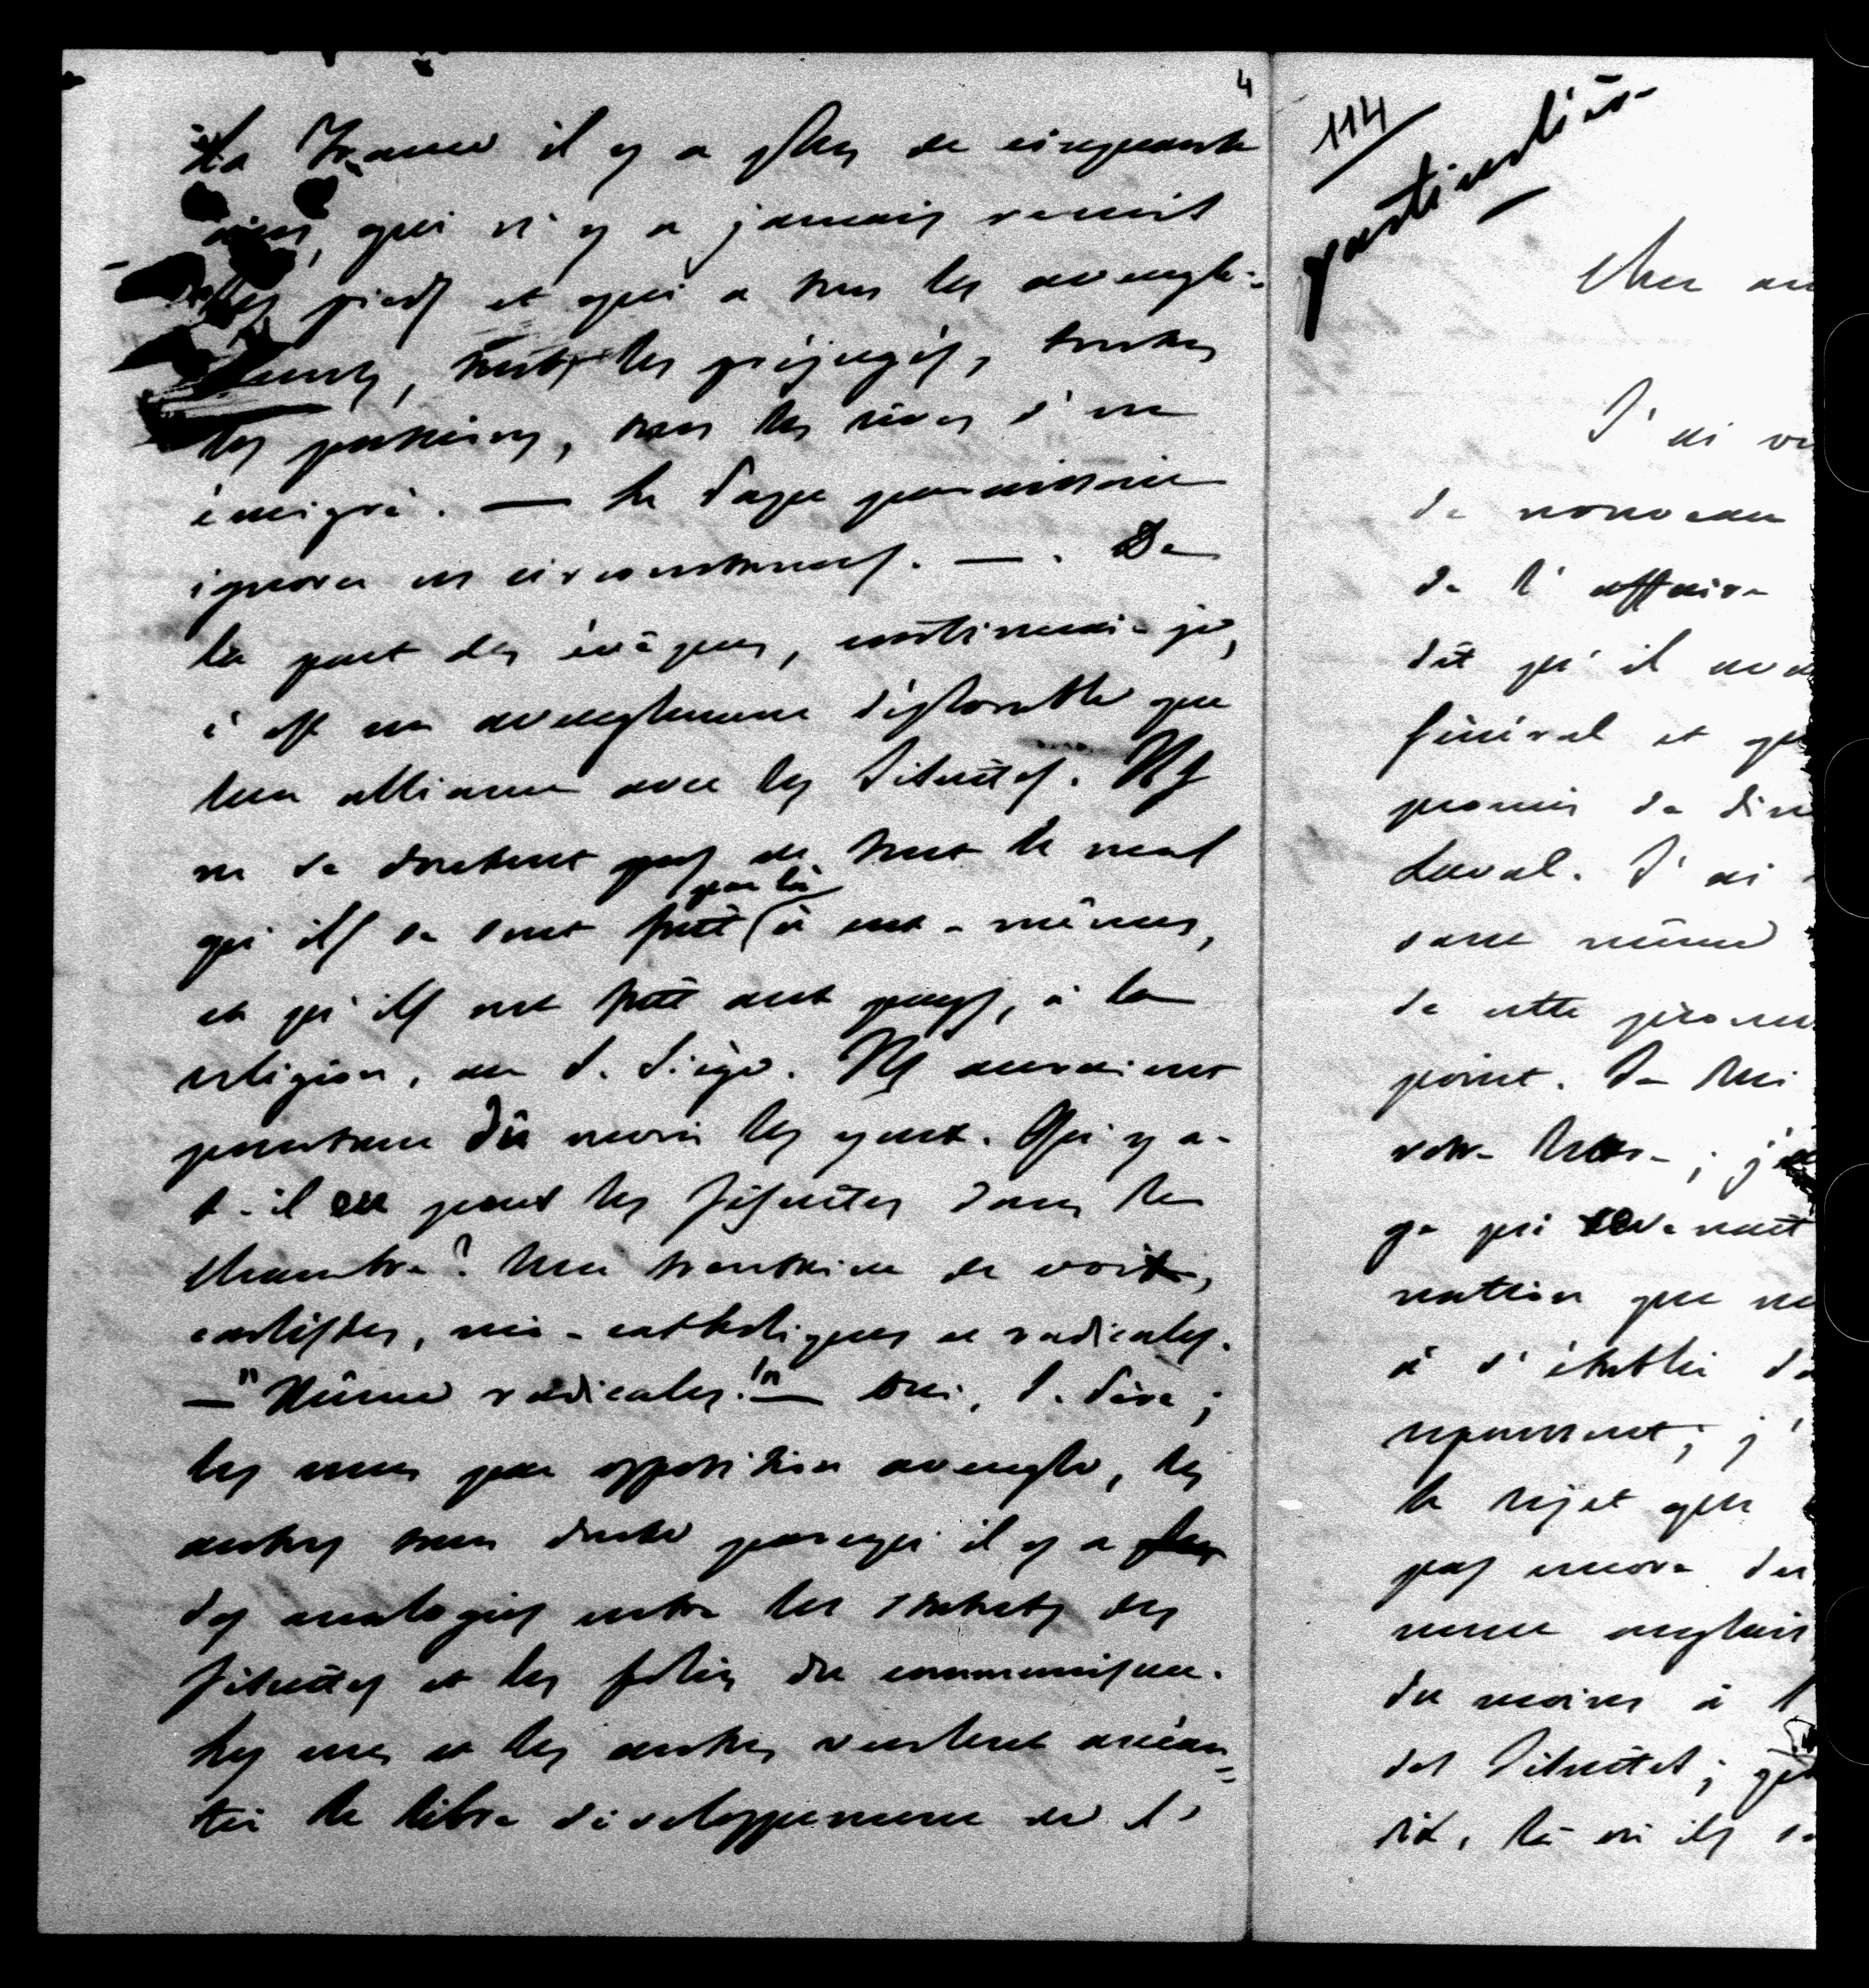 4
la France il y a plus de cinquante
ans, qui n'y a jamais remis
les pieds et qui a tous les aveugle-
ments, tous les préjugés, toutes
les passions, tous les rêves d'un
émigré. — Le Pape paraissait
ignorer ces circonstances. — . De
la part des évêques, continuai-je,
c'est un aveuglement déplorable que
leur alliance avec les Jésuites. Ils
ne se doutent pas de tout le mal
par là
qu'ils se sont fait à eux-mêmes,
et qu'ils ont fait aux pays, à la
religion, au S. Siège. Ils auraient
pourtant dû ouvrir les yeux. Qu'y a-
t-il eu pour les Jésuites dans la
Chambre? Une trentaine de voix,
carlistes, néo-catholiques et radicales.
— "Même radicales!" — Oui, S. Père;
les unes par opposition aveugle, les
autres sans doute parcequ'il y a
des analogies entre les statuts des
Jésuites et les folies du communisme.
Les uns et les autres veulent anéan=
tir le libre développement de l'
114
particulière
Cher am
J'ai vu
de nouveau
de l'affaire
dit qu'il ava
général et qu
promis de dire
Laval. J'ai
sans même
de cette
point. Je lui
votre lettre ; j'
ce qui concernait
nation que
à s'établir da
repoussent ; j'
le rejet que
pas encore du
ment anglais
du moins à l
des Jésuites ;
dit, là où ils s